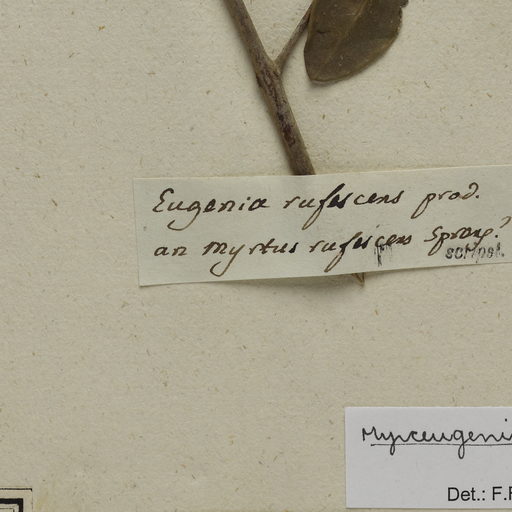 Eugenia rufescens prod.
an Myrtus rufescens Spreng?
script.
Myrceugeni
Det.: F.F